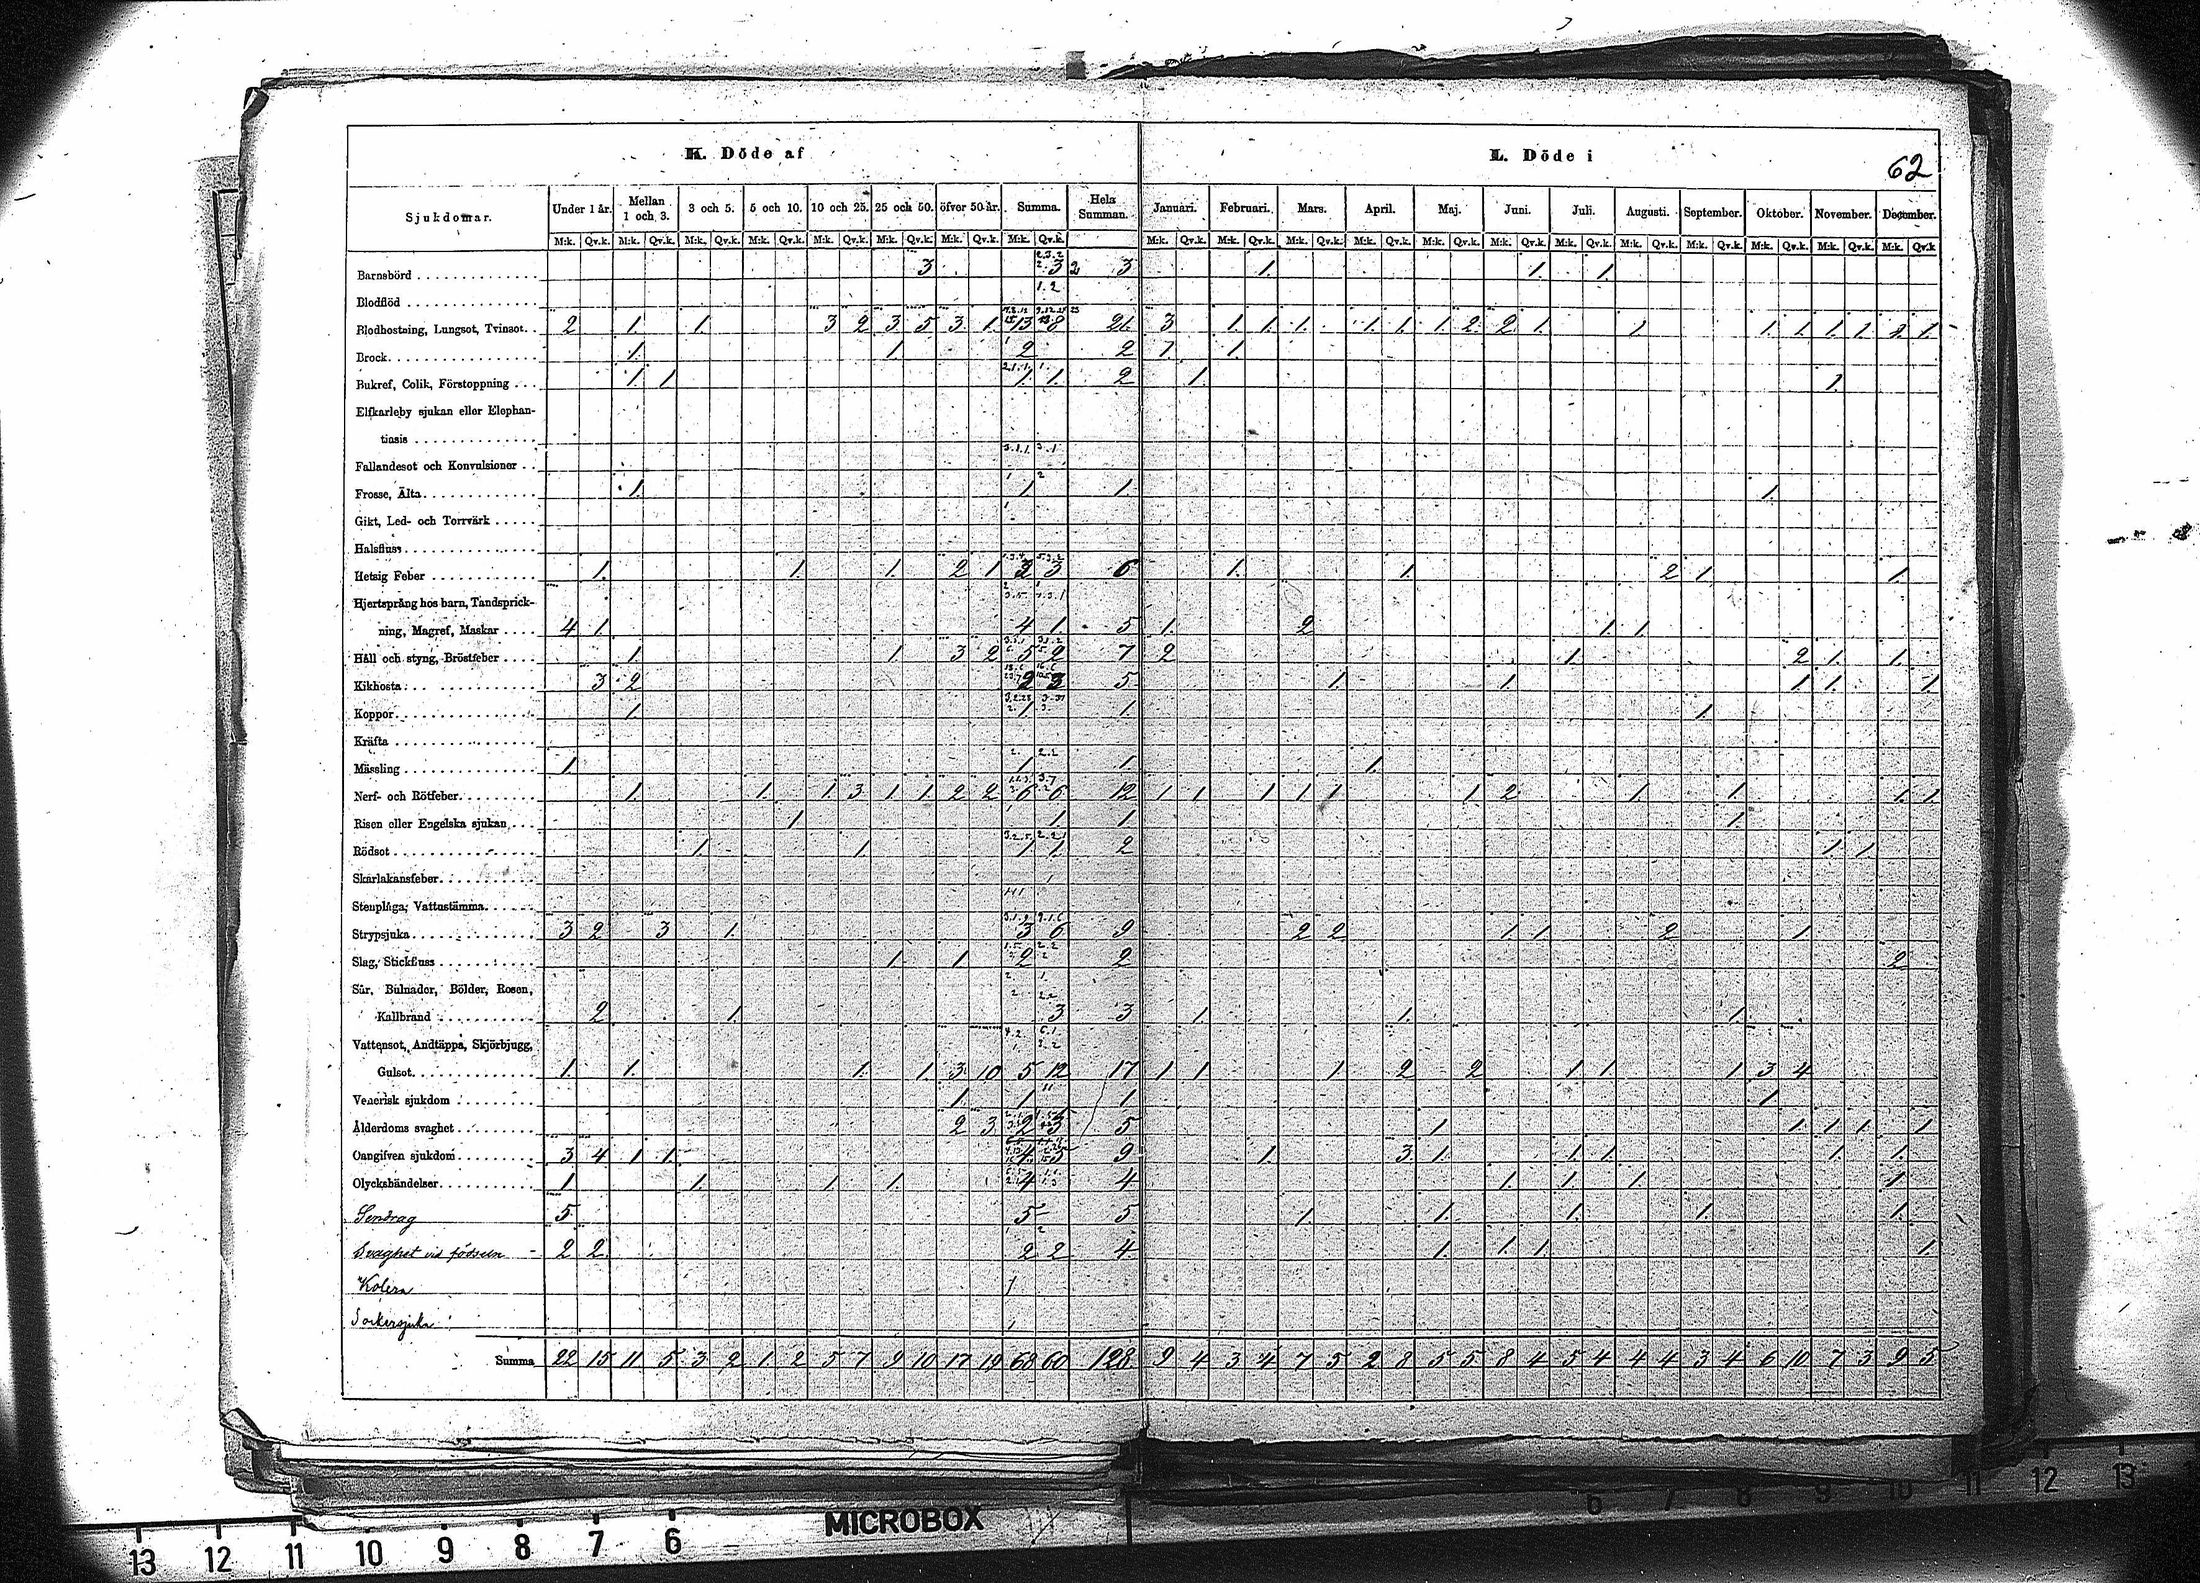 K. Döde af
L. Döde i
62
Sjukdomar. Under 1 år. Mellan 1 och 3. 3 och 5. 5 och 10. 10 och 25. 25 och 50. öfver 50 år. Summa. Hela Summan. Januari. Februari. Mars. April. Maj. Juni. Juli. Augusti. September. Oktober. November. December.
M:k. Qv.k. M:k. Qv.k. M:k. Qv.k. M:k. Qv.k. M:k. Qv.k. M:k. Qv.k. M:k. Qv.k. M:k. Qv.k. M:k. Qv.k. M:k. Qv.k. M:k. Qv.k. M:k. Qv.k. M:k. Qv.k. M:k. Qv.k. M:k. Qv.k. M:k. Qv.k. M:k. Qv.k. M:k. Qv.k. M:k. Qv.k. M:k. Qv.k
Barnsbörd 3 3 3 1. 1. 1.
Blodflöd
Blodhostning, Lungsot, Tvinsot. 2 1. 1. 3 2 3 5 3. 1. 13 8 21. 3 1. 1. 1. 1. 1. 1. 2 2 1. 1. 1. 1. 1. 1. 2. 1.
Brock. 1. 1 2 2 1. 1.
Bukref, Colik, Förstoppning 1. 1 1. 1. 2 1. 1.
Elfkarleby sjukan eller Elephan-
tiasis
Fallandesot och Konvulsioner
Frosse, Älta 1. 1 1. 1.
Gikt, Led- och Torrvärk
Halsfluss
Hetsig Feber 1. 1. 1. 2 1 3 3 6 1. 1. 2 1. 1.
Hjertsprång hos barn, Tandsprick-
ning, Magref, Maskar 4 1. 4 1. 5 1. 2 1. 1.
Håll och styng, Bröstfeber 1. 1 3 2 5 2 7 2 1. 2 1. 1.
Kikhosta 3 2 2 3 5 1. 1. 1. 1. 1
Koppor 1. 1 1. 1.
Kräfta
Mässling 1 1 1 1.
Nerf- och Rötfeber. 1. 1. 1. 3 1. 1. 2 2 6 6 12 1 1 1 1 1 1 2 1. 1. 1. 1.
Risen eller Engelska sjukan 1 1 1 1.
Rödsot 1. 1. 1 1. 2 1. 1.
Skarlakansfeber.
Stenplåga, Vattustämma.
Strypsjuka 3 2 3 1. 3 6 9 2 2 1. 1. 2 1.
Slag, Stickfluss 1 1 2 2 2
Sår, Bulnader, Bölder, Rosen,
Kallbrand 2 1. 3 3 1. 1. 1.
Vattensot, Andtäppa, Skjörbjugg,
Gulsot. 1. 1. 1. 1. 3 10 5 12 17 1 1 1 2 2 1. 1. 1 3 4
Venerisk sjukdom 1. 1 1 1
Ålderdoms svaghet 2 3 2 3 5 1. 1. 1. 1. 1
Oangifven sjukdom 3 4 1 1. 4 5 9 1. 3 1. 1. 1. 1. 1.
Olyckshändelser. 1 1. 1 1. 4 4 1. 1. 1. 1.
Sendrag 5 5 5 1. 1. 1. 1. 1.
Svaghet vid födseln 2 2 2 2 4 1. 1. 1. 1.
Kolera 1
Sockersjuka 1
Summa 22 15 11 5 3 2 1 2 5 7 9 10 17 19 68 60 128 9 4 3 4 7 5 2 8 5 5 8 4 5 4 4 4 3 4 6 10 7 3 9 5
MICROBOX
13 12 11 10 9 8 7 6 6 7 8 9 10 11 12 13